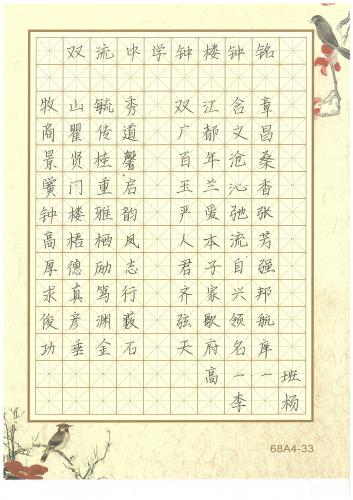 双流中学钟楼钟铭
牧山毓秀 双江含章
商瞿传道 广都文昌
景贤桂馨 百年沧桑
黉门重启 玉兰沁香
钟楼雅韵 严爱弛张
高梧栖凤 人本流芳
厚德励志 君子自强
求真笃行 齐家兴邦
俊彦渊薮 弦歌领航
功垂金石 天府名庠
高一一班
李杨
68A4-33